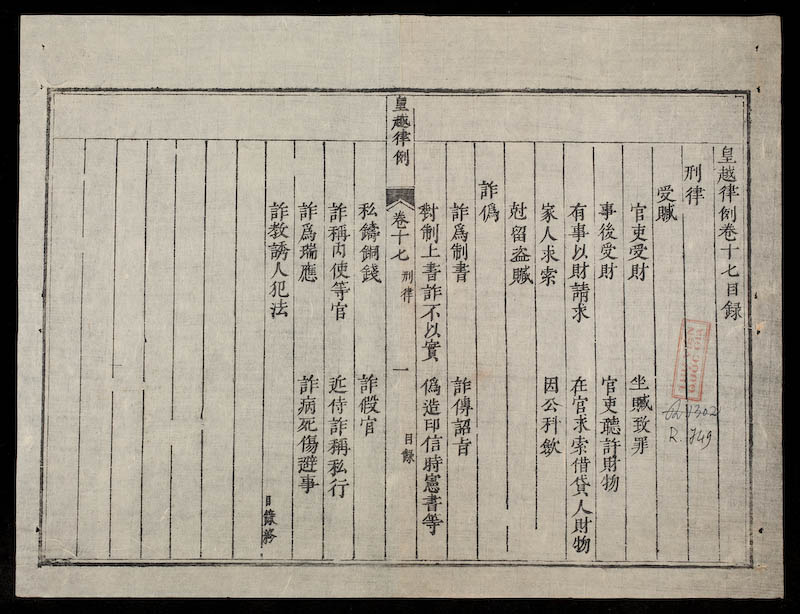 皇越律例卷十七目録
刑律
受贓
官吏受財 坐贓致罪
事後受財 官吏聽許財物
有事以財請求 在官求索借貸人財物
家人求索 因公科歛
尅留盗贓
詐偽
詐為制書 詐傳詔旨
對制上書詐不以實 偽造印信時憲書等
皇越律例 卷十七 刑律 一 目錄
私鑄銅錢 詐假官
詐稱内使等官 近侍詐稱私行
詐為瑞應 詐病死傷避事
詐教誘人犯法
目錄終
A 4302
R. 749